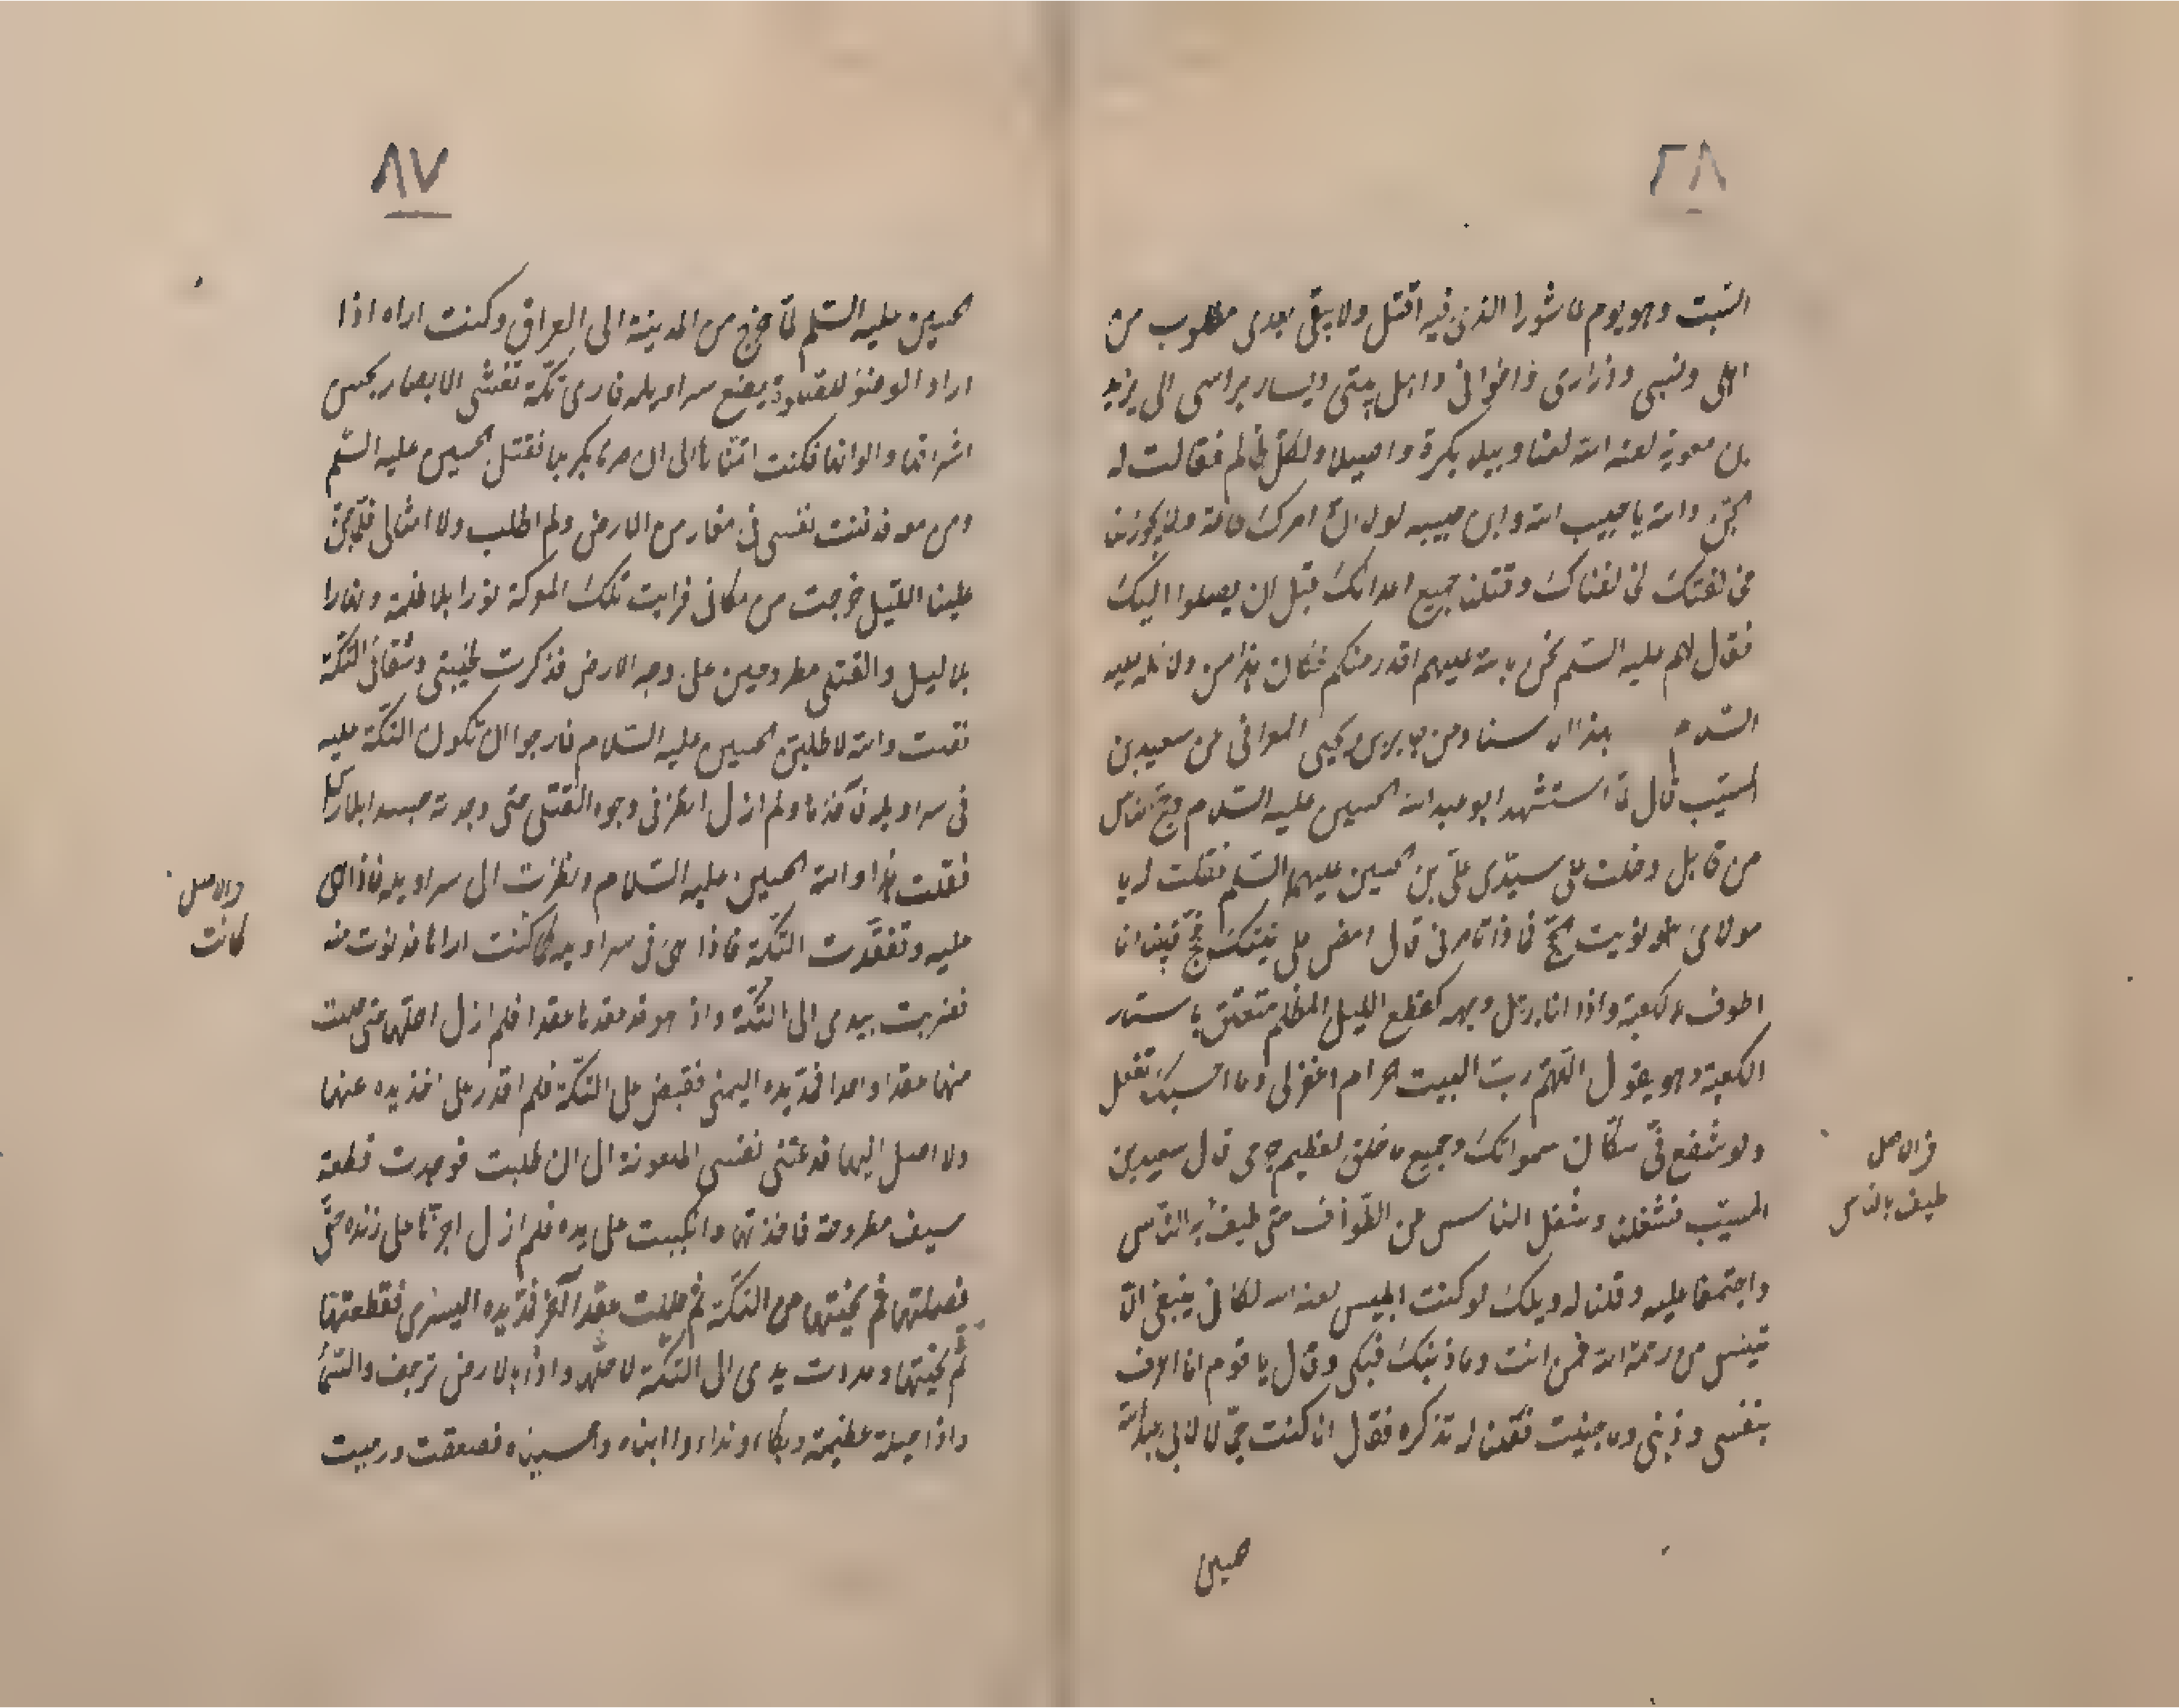 ٨٦
السبت وهو يوم عاشورا الذي فيه اقتل ولا يبقى بعدى مطلوب من
اهلى ونسبى وذرارى واخوانى واهل بيتى ويسار براسى الى يزيد
بن معوية لعنه الله لعنا وبيلا بكرة واصيلا ولكل ظالم فقالت له
الجن والله يا حبيب الله وابن حبيبه لولا ان امرك طاعة ولا يجوز لنا
مخالفتك لخالفناك وقتلنا جميع اعدائك قبل ان يصلوا اليك
فقال لهم عليه السلم نحن بالله عليهم اقدر منكم فكان هذا من دلائله عليه
السلام بهذا الاسناد عن جابر بن يحيى عن سعيد بن
المسيب قال لما استشهد ابو عبد الله الحسين عليه السلام وحج الناس
من قابل دخلت على سيدى على بن الحسين عليهما السلم فقلت له يا
مولاى نويت الحج فماذا تامرنى قال امض على نيتك فحج فبينا انا
اطوف بالكعبة واذا انا برجل وجهه كقطع الليل المظلم متعلق باستار
الكعبة وهو يقول اللهم رب البيت الحرام اغفرلى وما احسبك تفعل
ولو شفع فى سكان سمواتك وجميع ما خلقت لعظيم جرمى قال سعيد بن
المسيب فشغلنا وشغل الناس عن الطواف حتى طيف به الناس
واجتمعنا عليه وقلنا له ويلك لو كنت ابليس لعنه الله لكان ينبغى ان لا
تيئس من رحمة الله فمن انت وما ذنبك فبكى وقال يا قوم انا اعرف
بنفسى وذنبى وما جنيت فقلنا له تذكره فقال انا كنت جمالا لابى عبد الله
فى الاصل
طيف بالناس
حسين
٨٧
الحسين عليه السلم لما خرج من المدينة الى العراق وكنت اراه اذا
اراد الوضوء للصلوة يضع سراويله فارى تكة تغشى الابصار بحسن
اشراقها والوانها فكنت اتمناها الى ان صرنا بكربلا فقتل الحسين عليه السلم
ومن معه فدفنت نفسى فى مغار من الارض ولم اطلب ولا امثالى فلما جن
علينا الليل خرجت من مكانى فرايت تلك المعركة نورا بلا ظلمة ونهارا
بلا ليل والقتلى مطروحين على وجه الارض فذكرت لخيبتى وشقائى التكة
فقلت والله لاطلبن الحسين عليه السلام فارجوا ان تكون التكة عليه
فى سراويله فآخذها ولم ازل انظر فى وجوه القتلى حتى وجدته جسدا بلا راس
فقلت هذا والله الحسين عليه السلام ونظرت الى سراويله فاذا هى
عليه وتفقدت التكة فاذا هى فى سراويله كما كنت اراها فدنوت منه
فضربت بيدى الى التكة واذ هو قد عقدها عقدا فلم ازل احلها حتى حللت
منها عقدا واحدا فمد يده اليمنى فقبض على التكة فلم اقدر على اخذ يده عنها
ولا اصل اليها فدعتنى نفسى الملعونة الى ان طلبت فوجدت قطعة
سيف مطروحة فاخذتها وانكببت على يده فلم ازل اجزها على زنده حتى
فصلتها ثم نحيتها عن التكة ثم حللت عقدا آخر فمد يده اليسرى فقطعتها
ثم نحيتها ومددت يدى الى التكة لاحلها واذا بالارض ترجف والسما
واذا جلبة عظيمة وبكاء ونداء واابناه واحسيناه فصعقت ورميت
والاصل
كانت